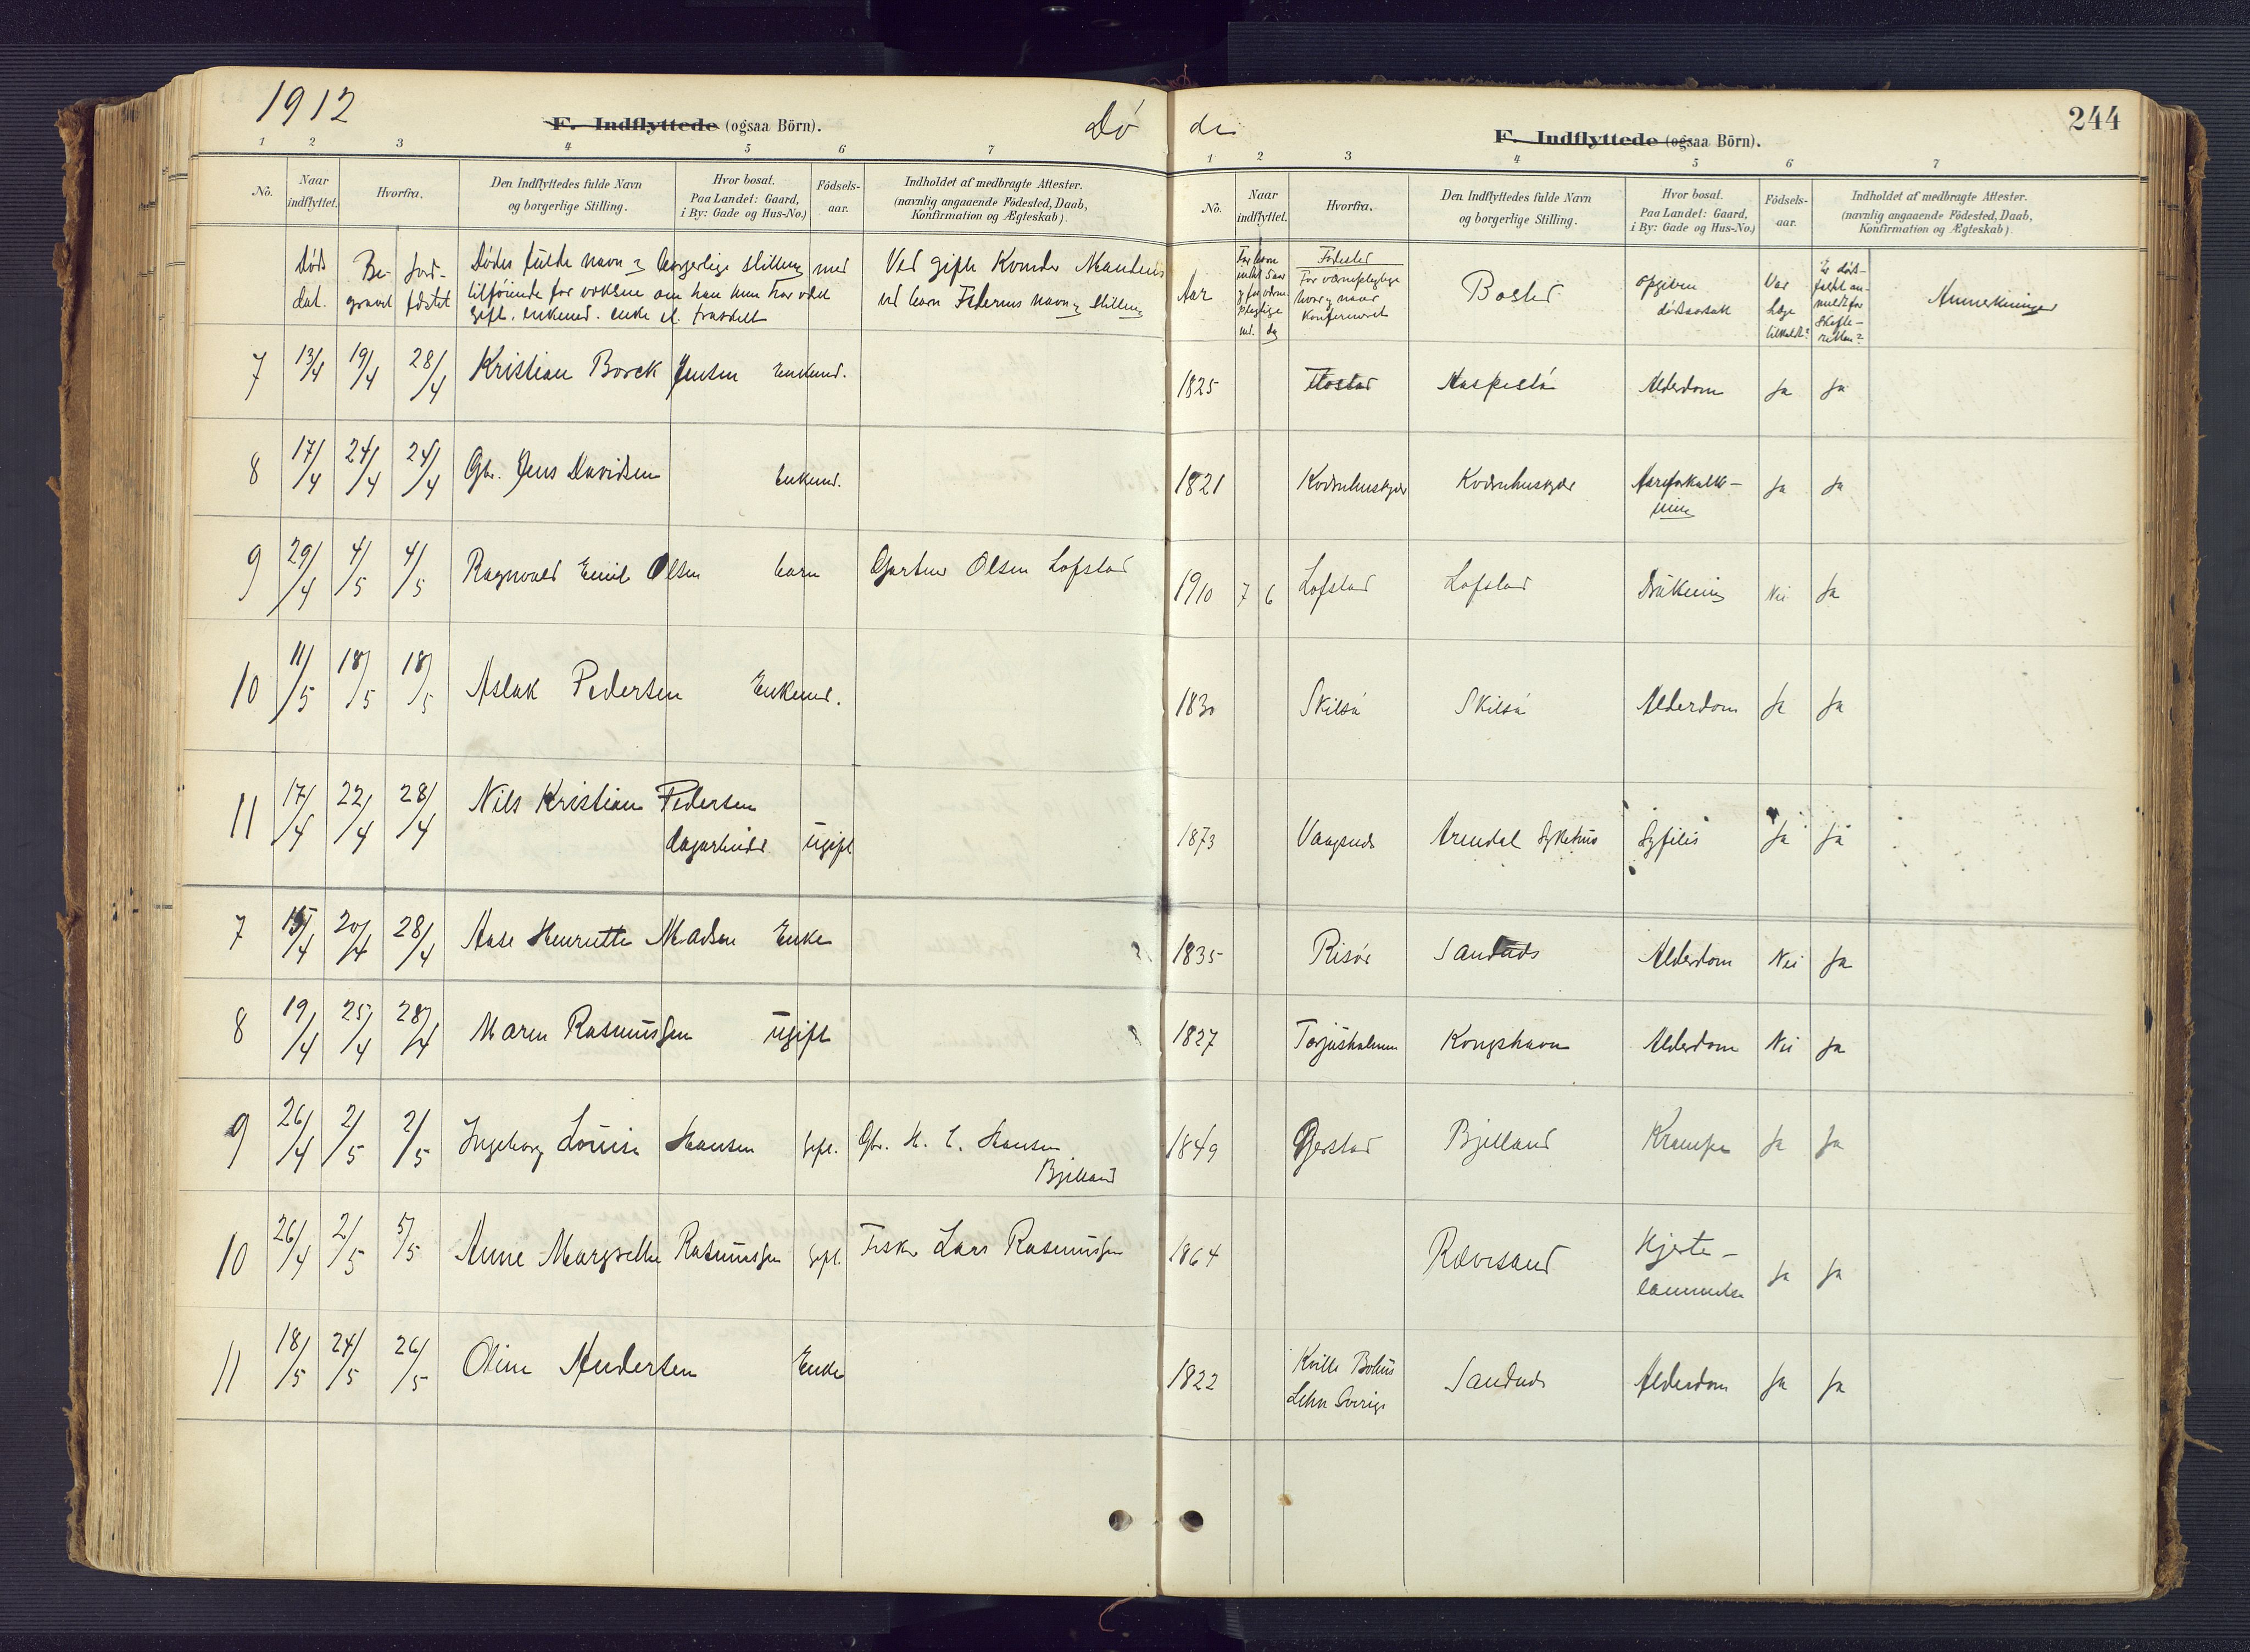 1912
F. Indflyttede (ogsaa Börn).
Dö
1 2 3 4 5 6 7
No. Naar indflyttet. Hvorfra. Den Indflyttedes fulde Navn og borgerlige Stilling. Hvor bosat. Paa Landet: Gaard, i By: Gade og Hus-No.) Födsels-aar. Indholdet af medbragte Attester. (navnlig angaaende Födested, Daab, Konfirmation og Ægteskab).
Døds dat. Be-gravet Jord-fæstet Dødes fulde navn og borgerlige stilling med tilføiende for voksne om han hun har været gift. enkemd. enke el. fraskilt Ved gifte Kvinder Mandens ved barn Faderens navn og stilling
7 13/4 19/4 28/4 Kristian Borck Jensen Enkemd.
8 17/4 24/4 24/4 Gbr. Jens Davidsen Enkemd.
9 29/4 4/5 4/5 Ragnvald Emil Olsen barn Gartner Olsen Lofstad
10 11/5 18/5 18/5 Aslak Pedersen Enkemd.
11 17/4 22/4 28/4 Nils Kristian Pedersen
dagarbeider ugift
7 15/4 20/4 28/4 Aase Henriette Madsen Enke
8 19/4 25/4 28/4 Maren Rasmussen ugift
9 26/4 2/5 2/5 Ingeborg Louise Hansen gift. Gbr. H. C. Hansen
Bjelland
10 26/4 2/5 5/5 Anne Margrethe Rasmussen gift. Fisker Lars Rasmussen
11 18/5 24/5 26/5 Oline Andersen Enke
de
F. Indflyttede (ogsaa Börn).
244
1 2 3 4 5 6 7
No. Naar indflyttet. Hvorfra. Den Indflyttedes fulde Navn og borgerlige Stilling. Hvor bosat. Paa Landet: Gaard, i By: Gade og Hus-No.) Födsels-aar. Indholdet af medbragte Attester. (navnlig angaaende Födested, Daab, Konfirmation og Ægteskab).
Aar For børn indtil 5 aar og for værnepligtige md. dg Fødested For værnepligtige hvor og naar Konfirmeret Bosted opgiven dødsaarsak Var Læge tilkaldt? Er døds-faldet an-meldt for Skifte-retten? Anmerkninger
1825 Flostad Naskestø Alderdom Ja Ja
1821 Kvernhuskjær Kvernhuskjær Aareforkalk-
ning Ja Ja
1910 7 6 Lofstad Lofstad Drukning Nei Ja
1830 Skilsø Skilsø Alderdom Ja Ja
1873 Vaagsnes Arendal Sykehus Syfilis Ja Ja
1835 Risør Sandnes Alderdom Nei Ja
1827 Torjusholmen Kongshavn Alderdom Nei Ja
1849 Gjerstad Bjelland Krampe Ja Ja
1864 Rævesand Hjerte-
lammelse Ja Ja
1822 Kville Bohus
Lehn Sverige Sandnes Alderdom Ja Ja